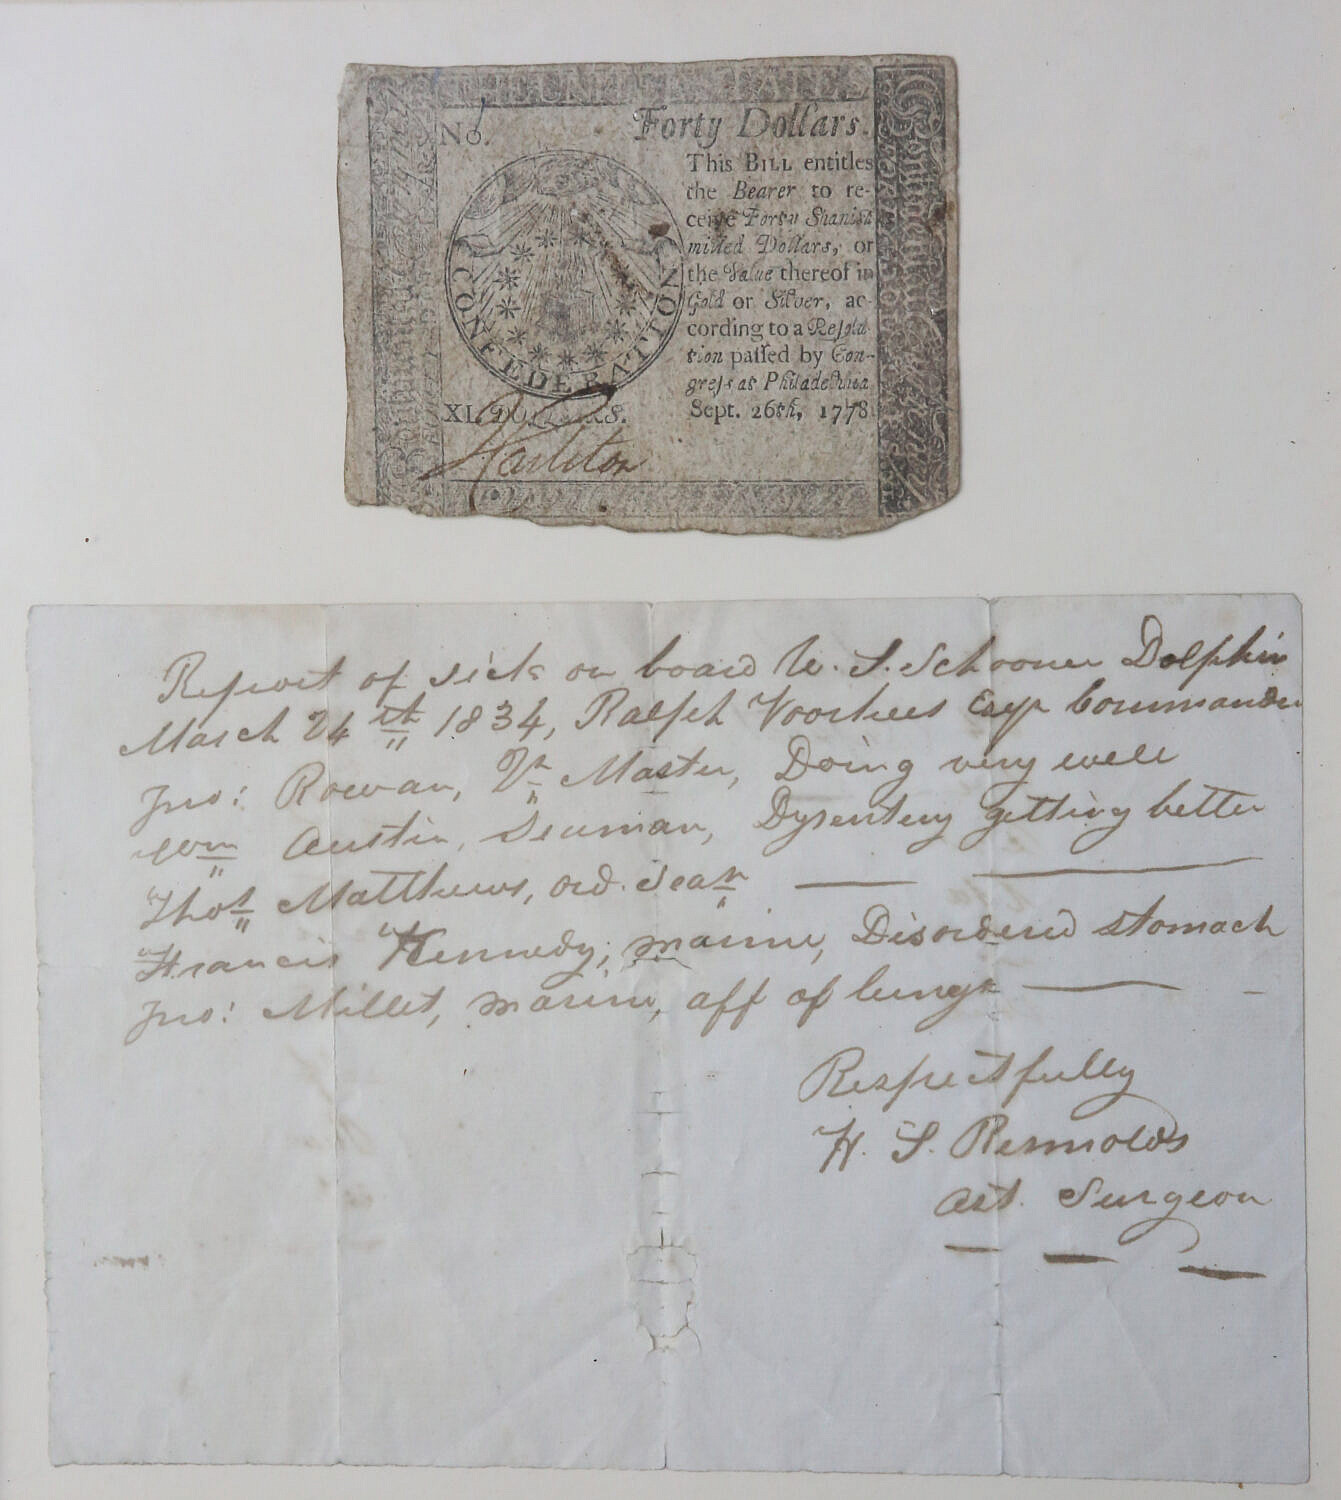 THE UNITED STATES
No.
Forty Dollars.
This BILL entitles
the Bearer to re-
ceive Forty Spanish
milled Dollars, or
the Value thereof in
Gold or Silver, ac-
cording to a Resolu-
tion passed by Con-
gress at Philadelphia
Sept. 26th, 1778
CONFEDERATION
XL DOLLARS.
Report of sick on board U. S. Schooner Dolphin
March 24th 1834, Ralph Voorhees Esqr Commander
Jno: Rowan, Master, Doing very well
Wm Austin, Seaman, Dysentery getting better
Thos Matthews, ord. Sean
Francis Kennedy, marine, Disordered stomach
Jno: Millet, marine, aff of lungs
Respectfully
H. S. Rennolds
Ast. Surgeon